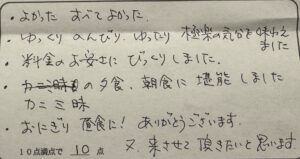 ・よかった すべてよかった.
・ゆっくり のんびり ゆったり 極楽の気分を味わえ
ました
・料金のお安さに びっくりしました.
・の夕食、朝食に 堪能しました
カニ三昧
・おにぎり 昼食に! ありがとうございます.
10点満点で 10 点 又、来させて 頂きたいと思います